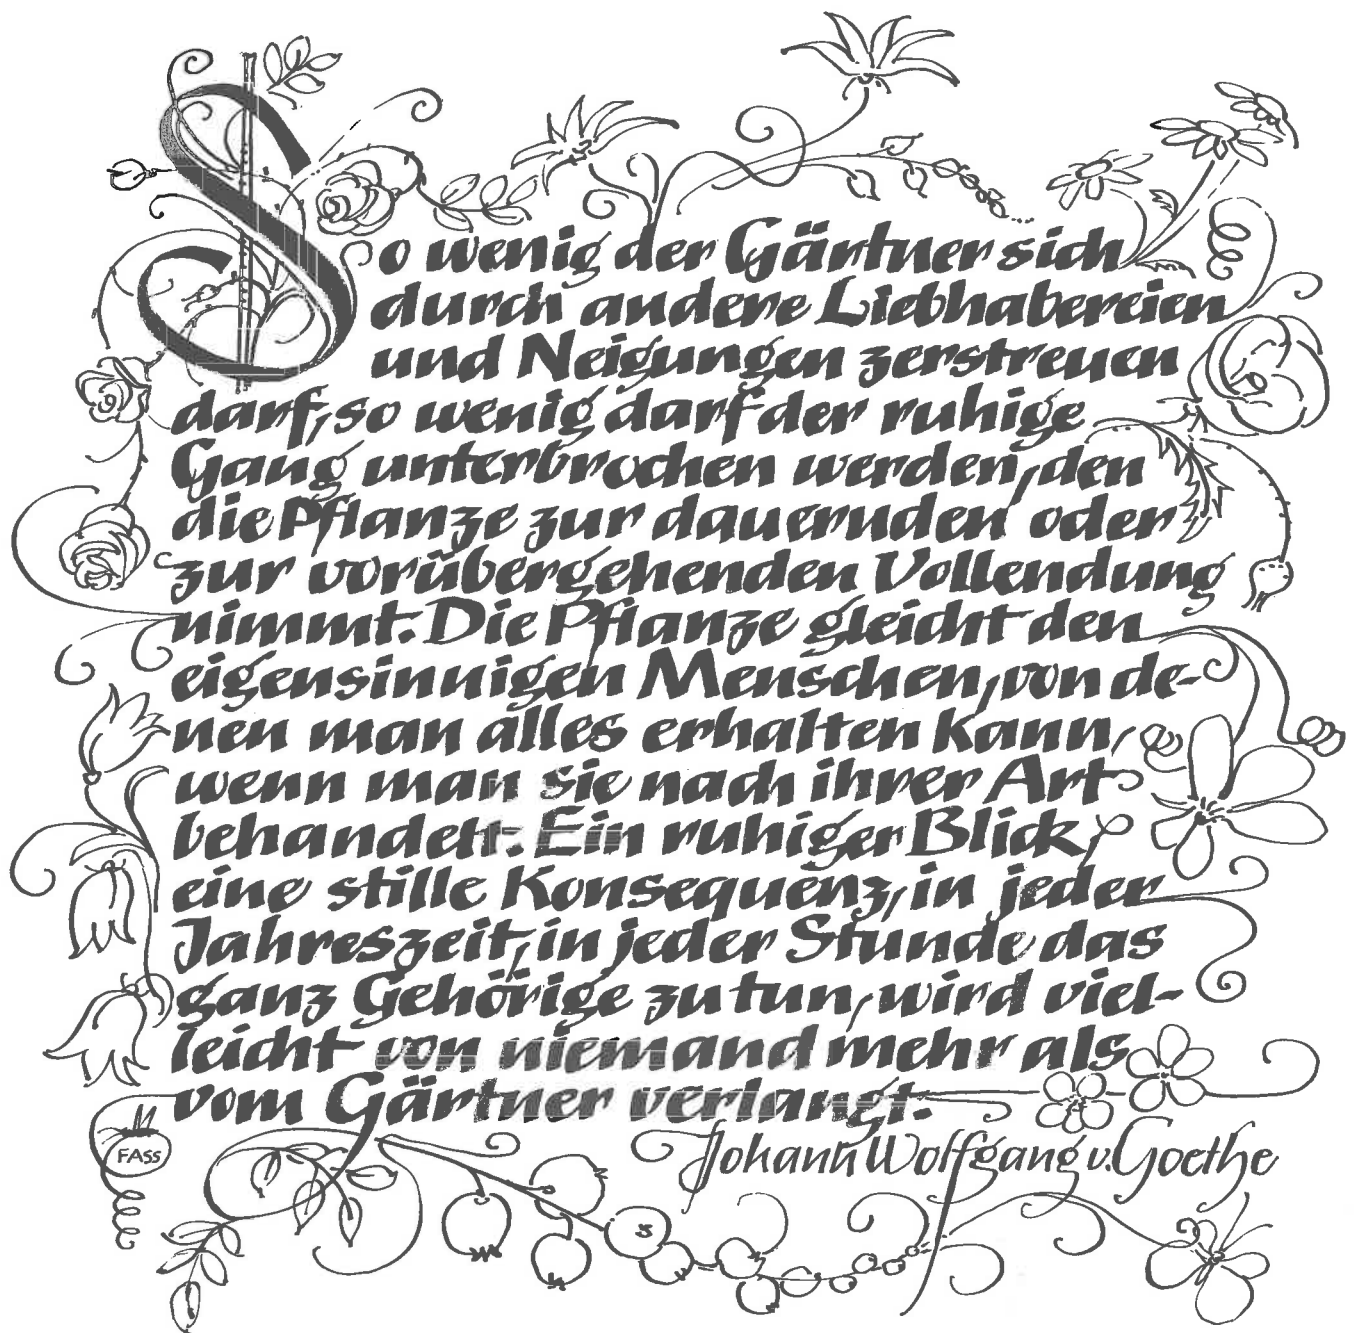 So wenig der Gärtner sich
durch andere Liebhabereien
und Neigungen zerstreuen
darf, so wenig darf der ruhige
Gang unterbrochen werden, den
die Pflanze zur dauernden oder
zur vorübergehenden Vollendung
nimmt. Die Pflanze gleicht den
eigensinnigen Menschen, von de-
nen man alles erhalten kann,
wenn man sie nach ihrer Art
behandelt. Ein ruhiger Blick,
eine stille Konsequenz, in jeder
Jahreszeit, in jeder Stunde das
ganz Gehörige zu tun, wird viel-
leicht von niemand mehr als
vom Gärtner verlangt.
Johann Wolfgang v. Goethe
FASS
S